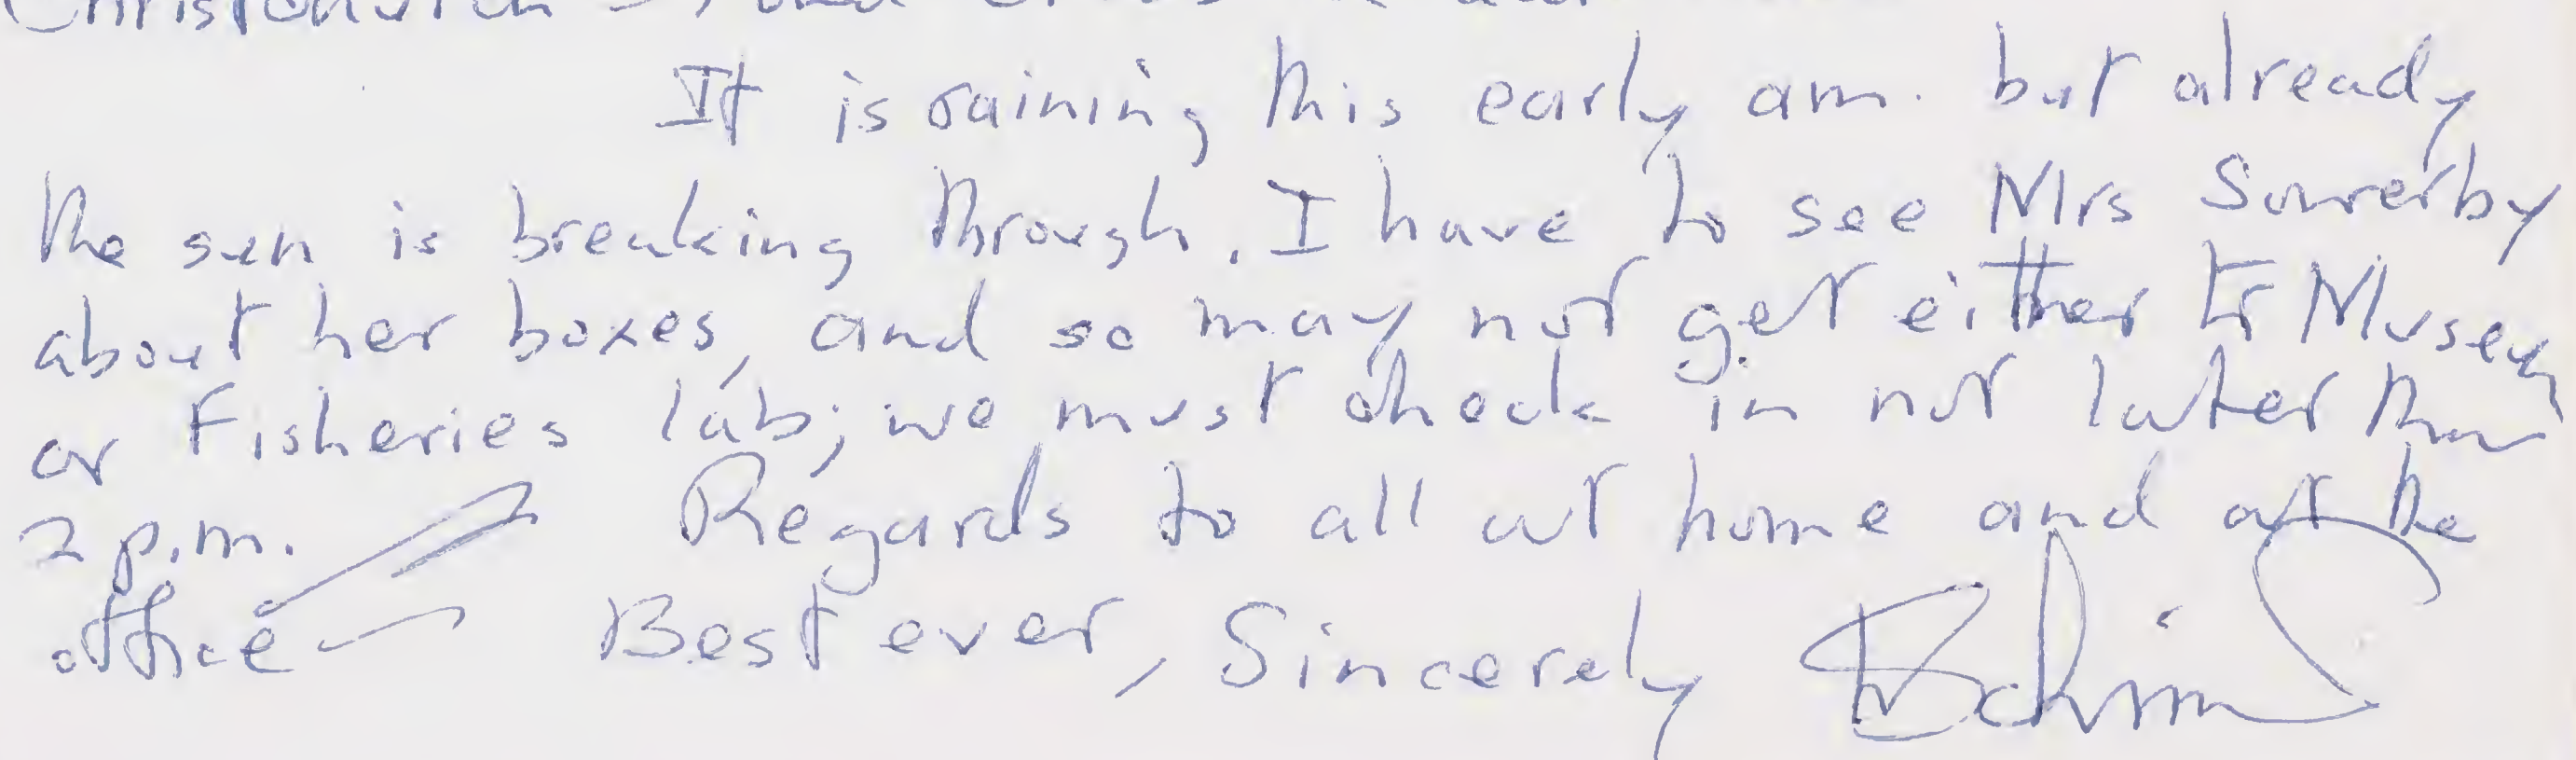 It is raining this early am. but already
the sun is breaking through. I have to see Mrs Sowerby
about her boxes, and so may not get either to Museum
or Fisheries lab; we must check in not later than
2 p.m. Regards to all at home and at the
office — Best ever, Sincerely